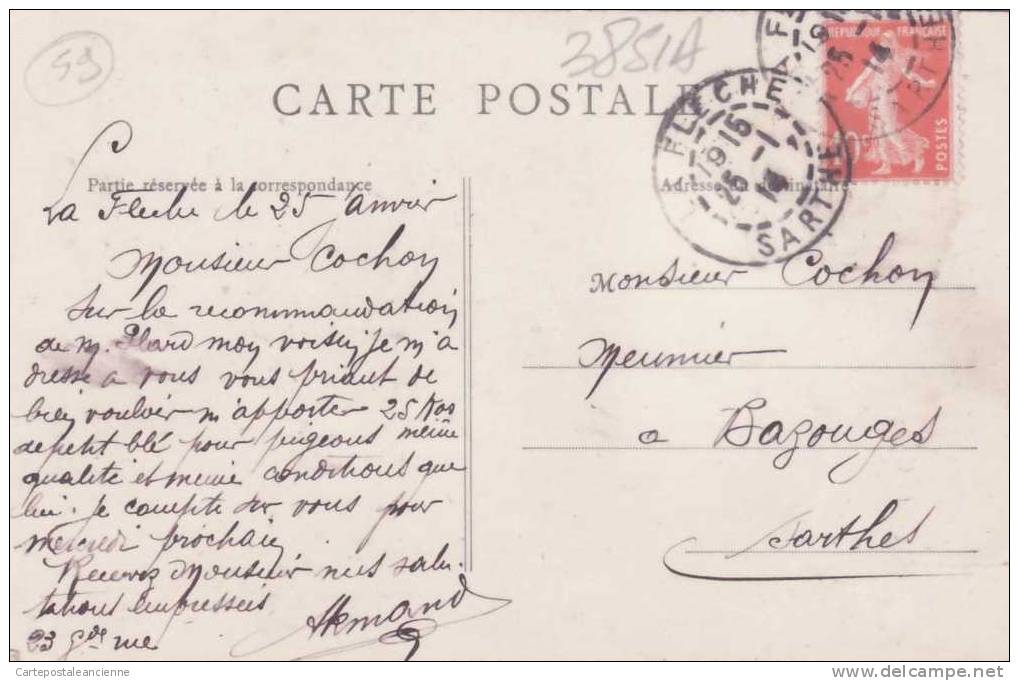 59
3851A
CARTE POSTALE
REPUBLIQUE FRANÇAISE
POSTES
LA FLECHE
1915
25 - 1
14
SARTHE
Partie réservée à la correspondance
Adresse du destinataire
La Fleche le 25 Janvier
Monsieur Cochon
Sur la recommandation
de M. Plard mon voisin je m'a
dresse a vous vous priant de
bien vouloir m'apporter 25 Kos
de petit blé pour pigeons même
qualité et même conditions que
lui. Je compte sur vous pour
mercredi prochain
Recevez Monsieur mes salu-
tations empressées
Armand
23 Gde rue
Monsieur Cochon
Meunier
a Bazouges
Sarthes
Cartepostaleancienne
www.delcampe.net